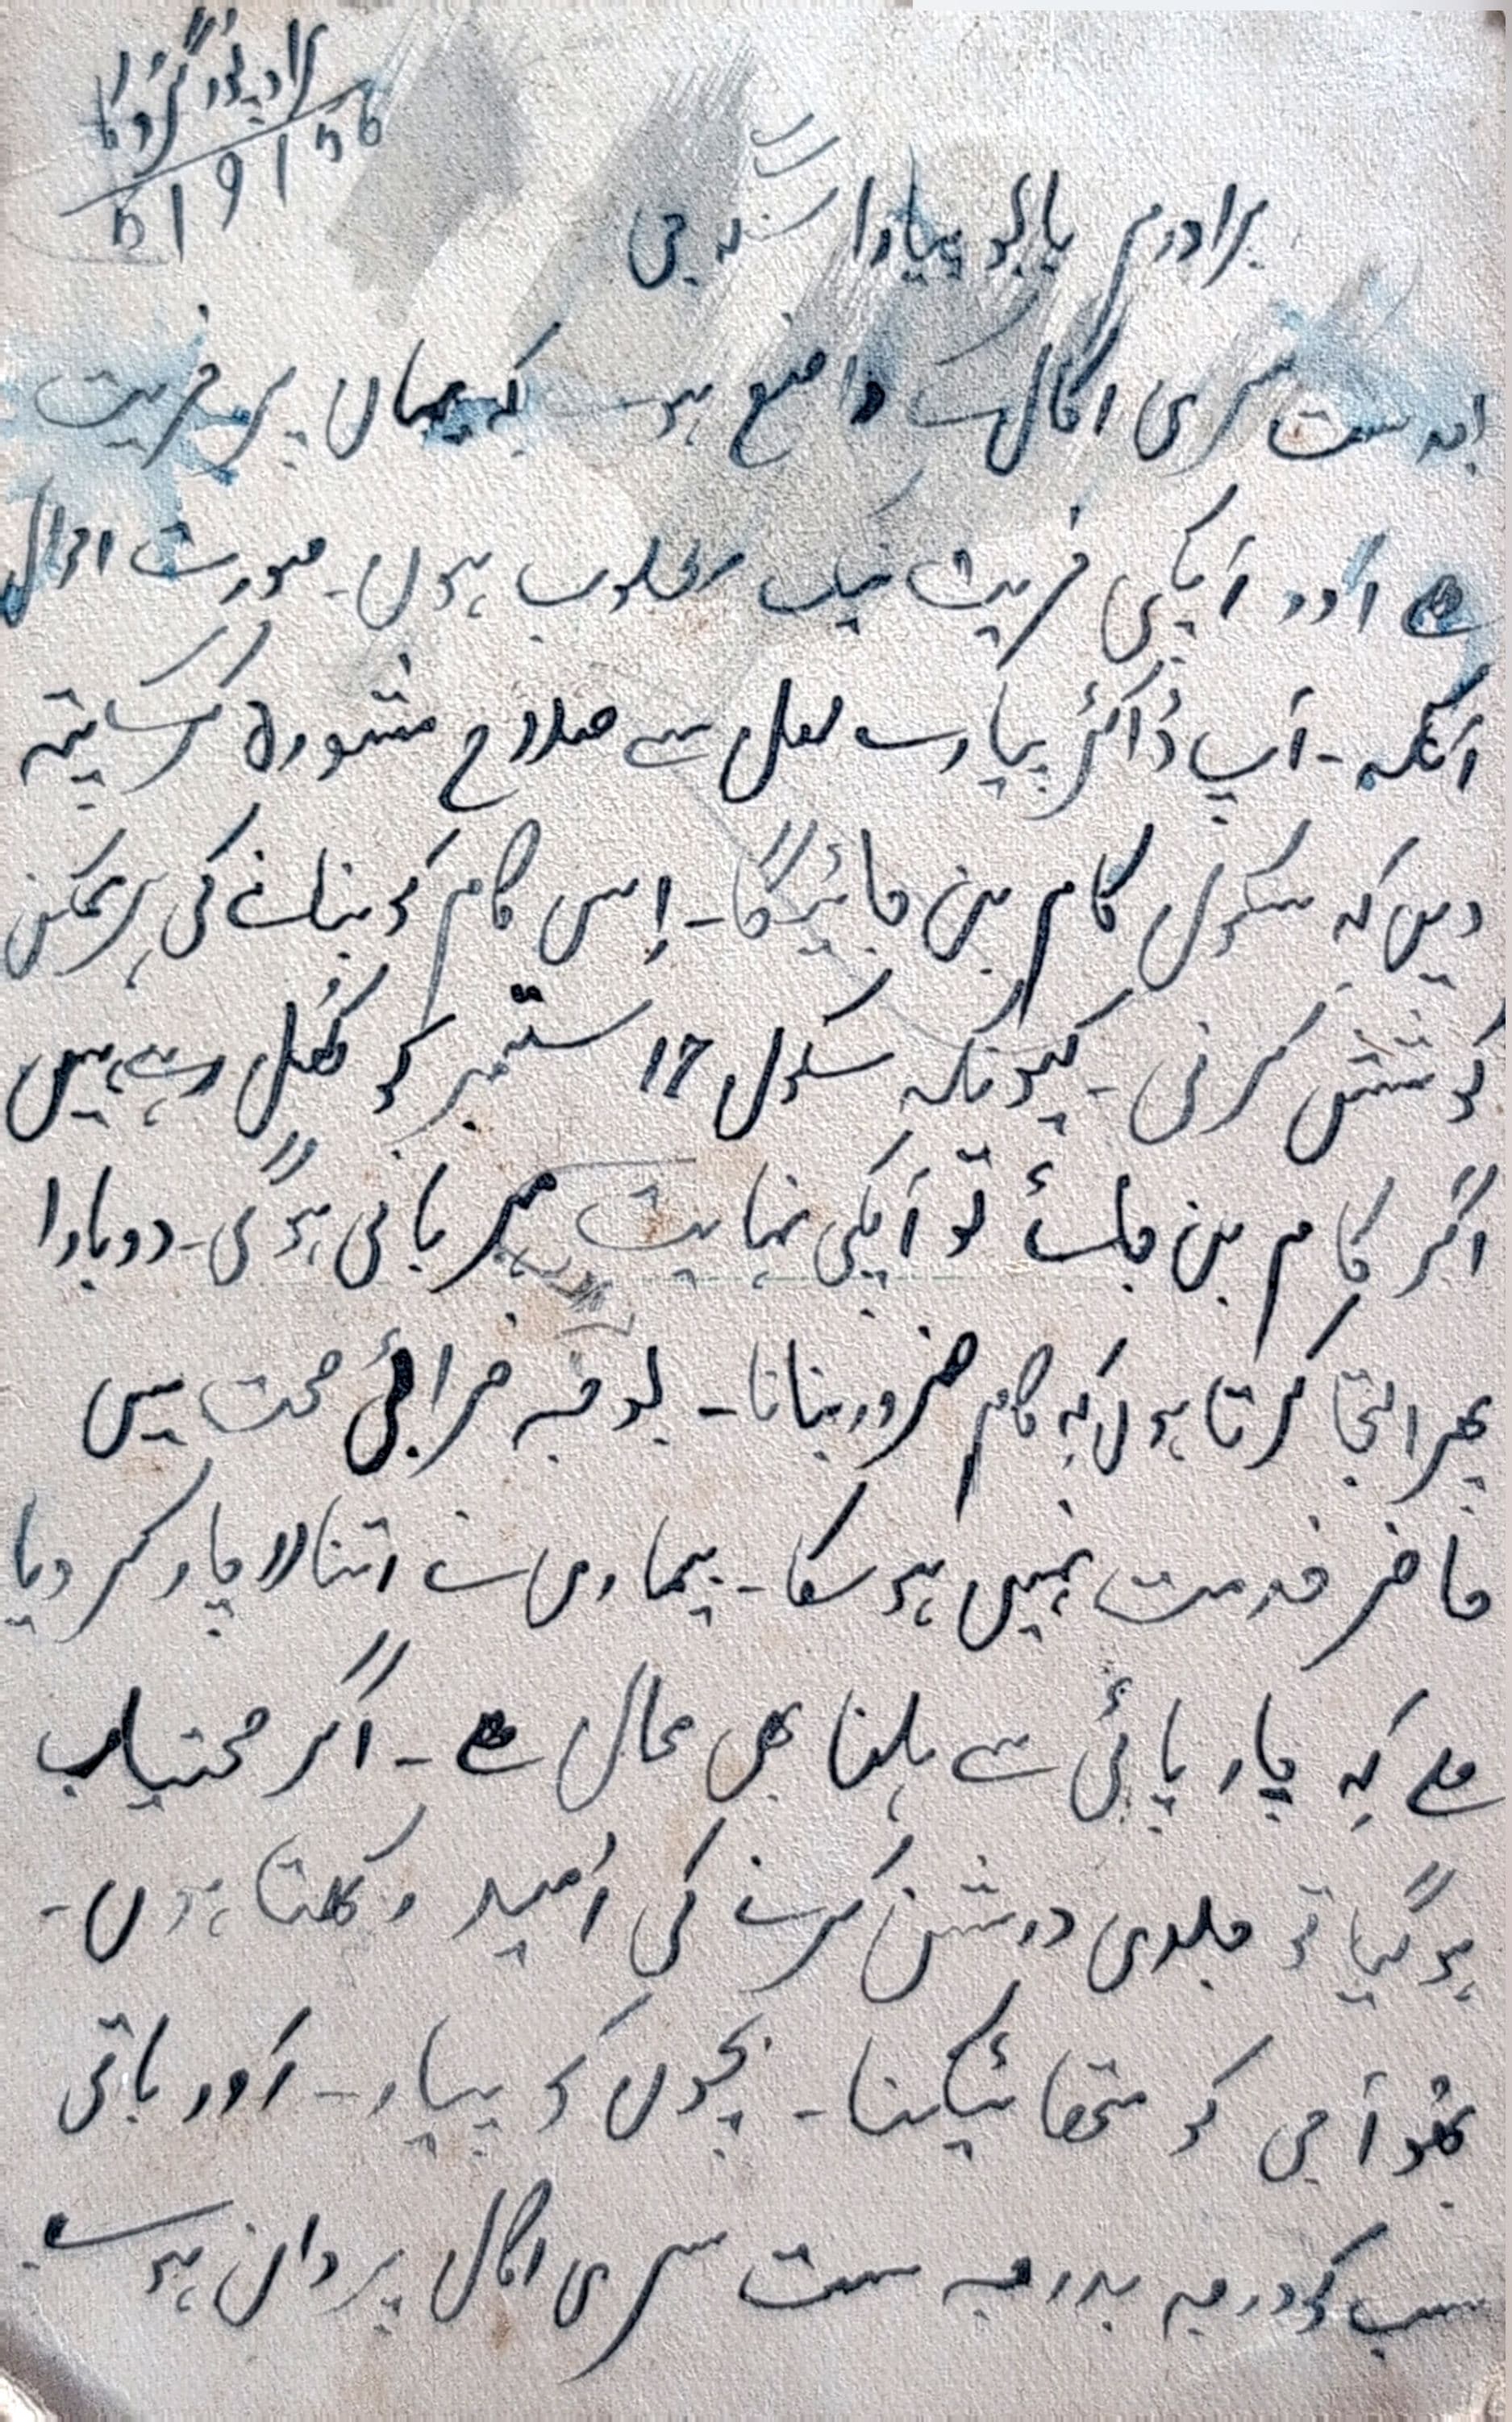 5/9/56
برادرم بابو پیارا سنگھ جی
بعد ست سری اکال کے واضع ہو کہ یہاں پر خریت
ہے اور آپکی خریت نیک مطلوب ہوں۔ صورت احوال
آنکہ۔ آپ ڈاکٹر پیارے لعل سے صلاح مشورہ کر
دیں کہ سکول کام بن جائیگا۔ اِس کام کو بنانے کی ہر ممکن
کوشش کرنی۔ کیونکہ سکول 17 ستمبر کو کُھل رہے ہیں
اگر کام بن جائے تو آپکی نہایت مہربانی ہوگی۔ دوبارا
پھر التجا کرتا ہوں کہ کام ضرور بنانا۔ بوجہ خرابئ صحت میں
حاضر خدمت نہیں ہو سکا۔ بیماری نے اتنا لاچار کر دیا
ہے کہ چارپائی سے ہلنا بھی محال ہے۔ اگر صحتیاب
ہو گیا تو جلدی درشن کرنے کی اُمید رکھتا ہوں۔
جی کو متھا ٹیکنا۔ بچوں کو پیار۔ اور باقی
سب کو درجہ بدرجہ ست سری اکال پروان ہووے